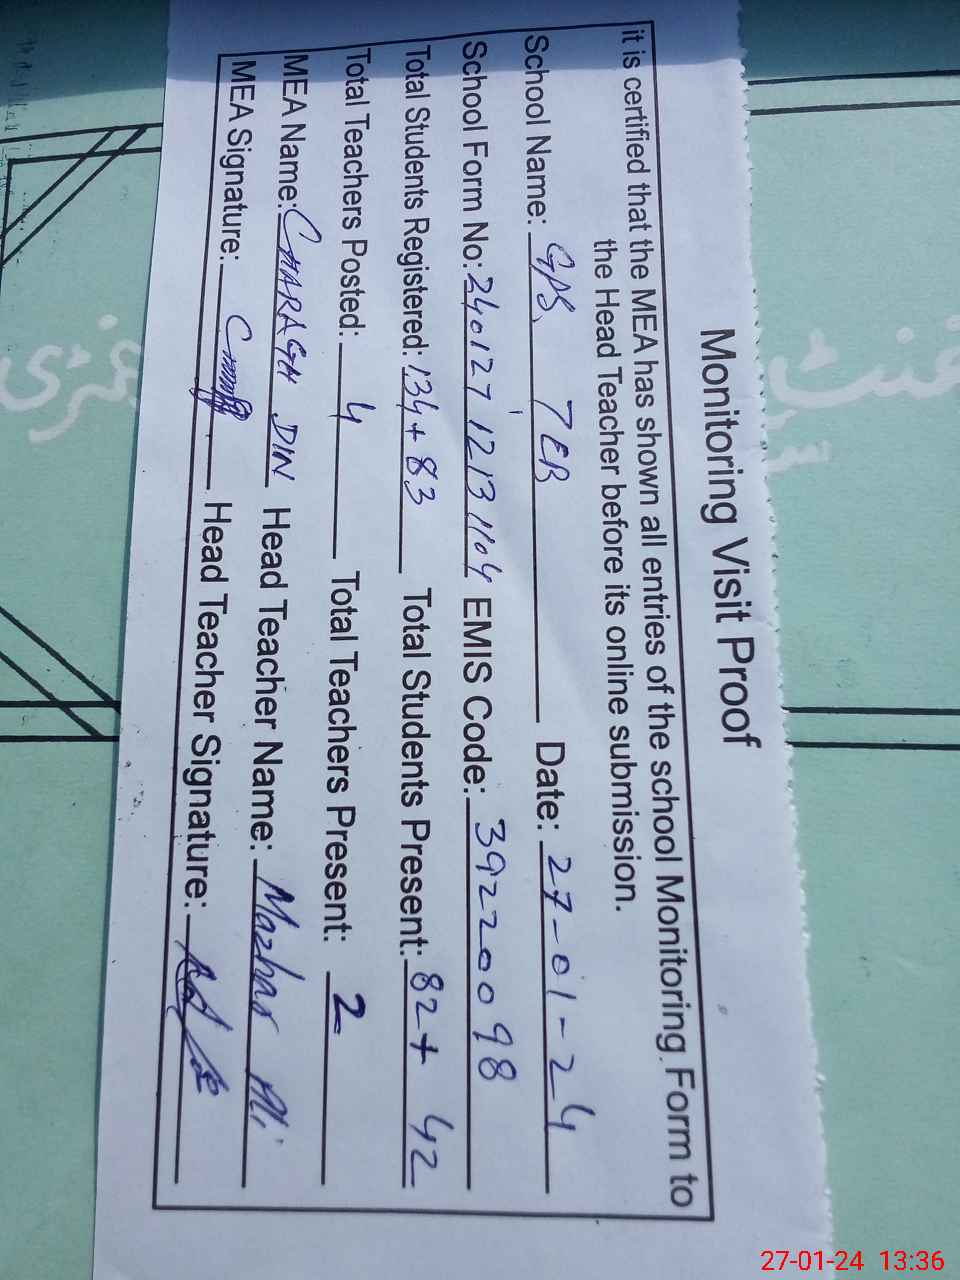 Monitoring Visit Proof
it is certified that the MEA has shown all entries of the school Monitoring Form to
the Head Teacher before its online submission.
School Name: GPS, 7 EB Date: 27-01-24
School Form No: 240127 1213 1104 EMIS Code: 39220098
Total Students Registered: 134+83 Total Students Present: 82+ 42
Total Teachers Posted: 4 Total Teachers Present: 2
MEA Name: CHARAGH DIN Head Teacher Name: Mazhar Ali
MEA Signature: Head Teacher Signature:
27-01-24 13:36